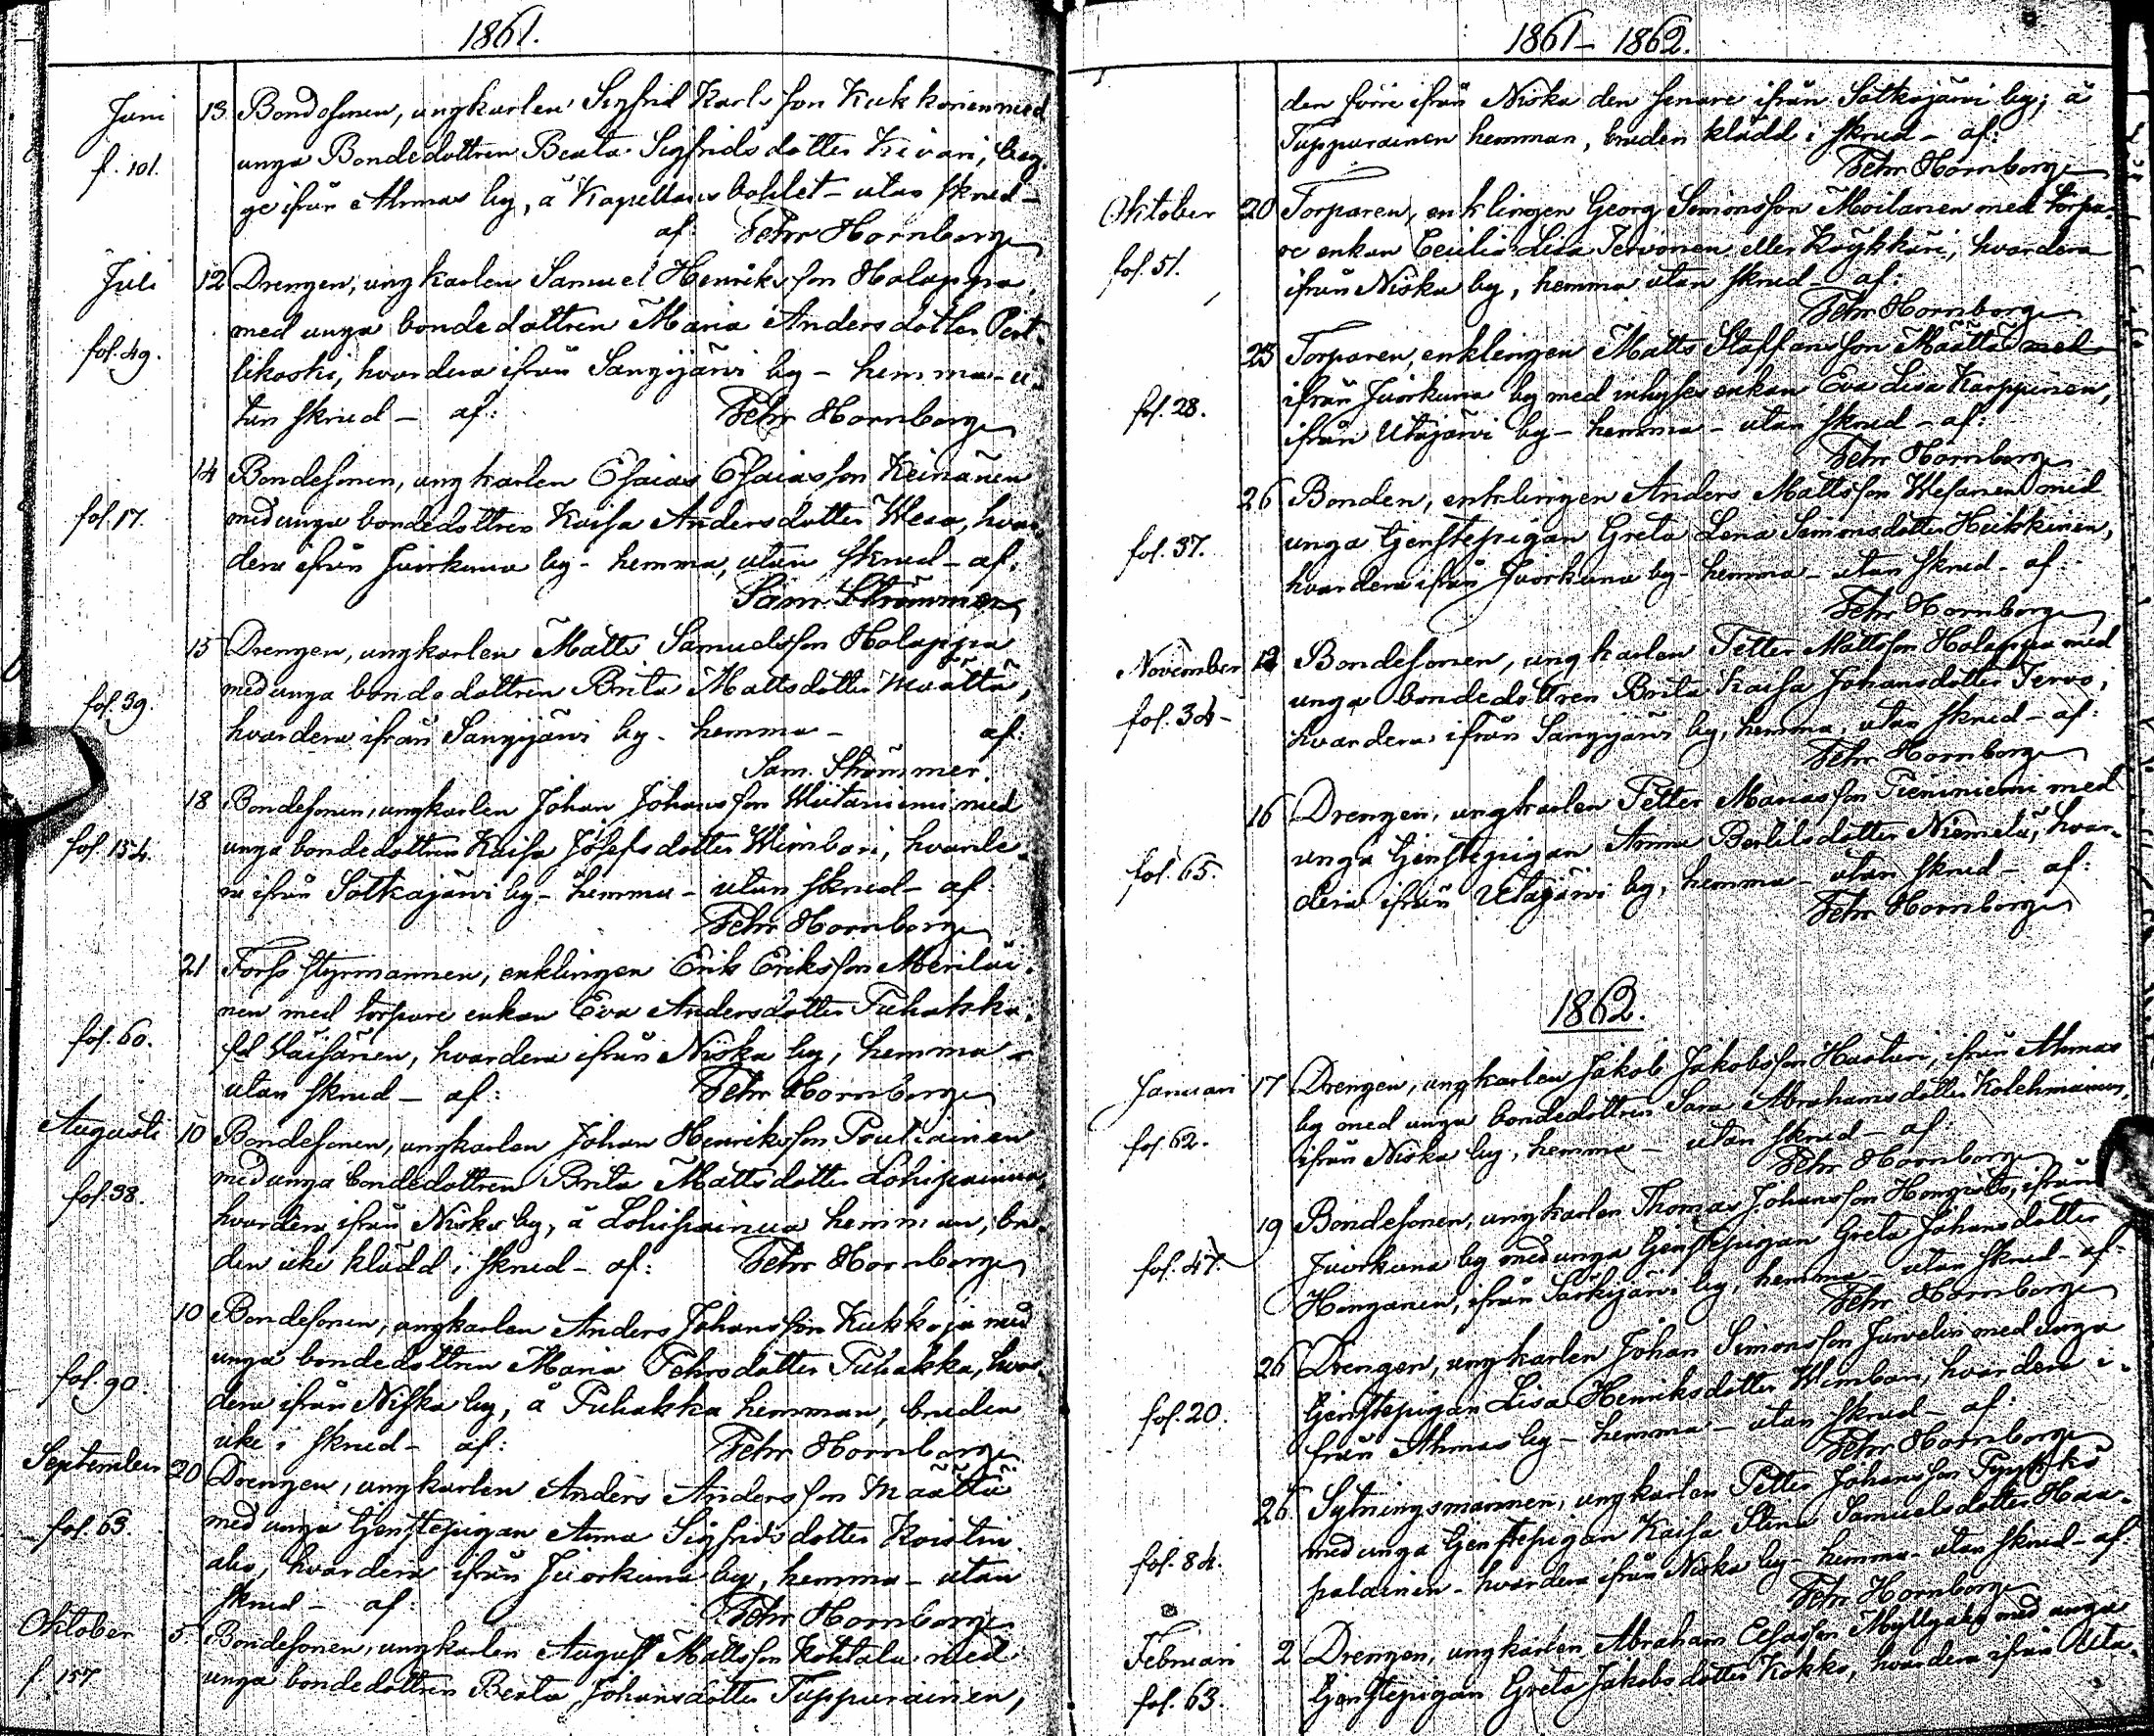 1861.
Juni 13. Bondesonen, ungkarlen Sigfrid Karlsson Kukkonen med
f. 101. unga Bondedottren Beata Sigfridsdotter Kivari, beg-
ge ifrån Ahmas by, å Kapellans bohlet - utan skrud -
af: Fehr Hornborg
Juli 12 Drengen, ungkarlen Samuel Henriksson Holappa,
fol. 49. med unga bondedottren Maria Andersdotter Pert-
likoski, hvardera ifrån Sangijärvi by - hemma - u-
tan skrud - af: Fehr Hornborg
14 Bondesonen, ungkarlen Esaias Esaiasson Keinänen
fol. 17. med unga bondedottren Kaisa Andersdotter Wesa, hvar-
dera ifrån Juorkuna by - hemma, utan skrud - af:
Sam. Strömmer
15 Drengen, ungkarlen Matts Samuelsson Holappa
fol. 39. med unga bondedottren Brita Mattsdotter Määttä,
hvardera ifrån Sangijärvi by - hemma - af:
Sam. Strömmer.
18 Bondesonen, ungkarlen Johan Johansson Wiitaniemi med
fol. 154. unga bondedottren Kaisa Josefsdotter Wimbari, hvarde-
ra ifrån Sotkajärvi by - hemma - utan skrud - af:
Fehr Hornborg
21 Forss styrmannen, enklingen Erik Eriksson Meriläi-
nen med torpare enkan Eva Andersdotter Puhakka
fol. 60. fd Väisänen, hvardera ifrån Niska by, hemma -
utan skrud - af: Fehr Hornborg
Augusti 10 Bondesonen, ungkarlen Johan Henriksson Pouliainen
fol. 98. med unga bondedottren Brita Mattsdotter Lohipainua,
hvardera ifrån Niska by, å Lohipainua hemman, bru-
den icke klädd i skrud - af: Fehr Hornborg
10 Bondesonen, ungkarlen Anders Johansson Kukkoja med
fol. 90. unga bondedottren Maria Fehrsdotter Puhakka, hvar-
dera ifrån Niska by, å Puhakka hemman, bruden
icke i skrud - af: Fehr Hornborg
September 20 Drengen, ungkarlen Anders Andersson Määttä
fol. 63. med unga tjenstepigan Anna Sigfridsdotter Koistin-
aho, hvardera ifrån Juorkuna by, hemma - utan
skrud - af: Fehr Hornborg
Oktober 5. Bondesonen, ungkarlen August Mattsson Kohtala med
f. 157 unga bondedottren Beata Johansdotter Tuppurainen,
1861 - 1862.
den förre ifrån Niska den senare ifrån Sotkajärvi by; å
Tuppurainen hemman, bruden klädd i skrud - af:
Fehr Hornborg
Oktober 20 Torparen, enklingen Georg Simonsson Moilanen med torpa-
fol. 51. re enkan Cecilia Lisa Tervonen eller Köykkäri, hvardera
ifrån Niska by, hemma utan skrud - af:
Fehr Hornborg
25 Torparen, enklingen Matts Staffansson Määttä med
fol. 28. ifrån Juorkuna by med inhyses enkan Eva Lisa Karppinen,
ifrån Utajärvi by - hemma - utan skrud - af:
Fehr Hornborg
26 Bonden, enklingen Anders Mattsson Wesanen med
fol. 37. unga tjenstepigan Greta Lena Simonsdotter Heikkinen,
hvardera ifrån Juorkuna by - hemma - utan skrud - af:
Fehr Hornborg
November 12 Bondesonen, ungkarlen Petter Mattsson Holappa med
fol. 34 - unga bondedottren Brita Kaisa Johansdotter Tervo,
hvardera ifrån Sangijärvi by, hemma, utan skrud - af:
Fehr Hornborg
16 Drengen, ungkarlen Petter Mariasson Pieniniemi med
fol. 65. unga tjenstepigan Anna Bertilsdotter Niemelä, hvar-
dera ifrån Utajärvi by, hemma - utan skrud - af:
Fehr Hornborg
1862.
Januari 17 Drengen, ungkarlen Jakob Jakobsson Hasturi, ifrån Ahmas
fol. 62. by med unga bondedottren Sara Abrahamsdotter Kolehmainen,
ifrån Niska by, hemma - utan skrud - af:
Fehr Hornborg
19 Bondesonen, ungkarlen Thomas Johansson Hongisto, ifrån
fol. 47. Juorkuna by med unga tjenstepigan Greta Johansdotter
Honganen, ifrån Särkijärvi by, hemma utan skrud - af:
Fehr Hornborg
26 Drengen, ungkarlen Johan Simonsson Juvelin med unga
fol. 20. tjenstepigan Lisa Henriksdotter Wimbari, hvardera i-
från Ahmas by - hemma - utan skrud - af:
Fehr Hornborg
26 Sytningsmannen, ungkarlen Petter Johansson
fol. 84. med unga tjenstepigan Kaisa Stina Samuelsdotter Haa-
palainen - hvardera ifrån Niska by - hemma - utan skrud - af:
Fehr Hornborg
Februari 2 Drengen, ungkarlen Abraham Esasson Myllyaho med unga
fol. 63. tjenstepigan Greta Jakobsdotter Kokko, hvardera ifrån Uta-